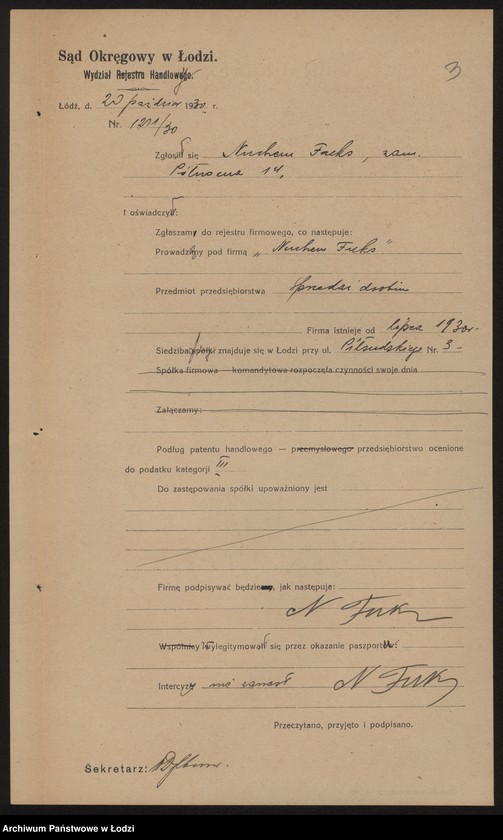 3
Sąd Okręgowy w Łodzi.
Wydział Rejestru Handlowego.
Łódź, d. 20 październ 1930 r.
Nr. 1211/30
Zgłosił się Nuchem Fuks, zam.
Piłsudna 14.
i oświadczył:
Zgłaszam do rejestru firmowego, co następuje:
Prowadzę pod firmą „Nuchem Fuks"
Przedmiot przedsiębiorstwa Sprzedaż drobiu
Firma istnieje od lipca 1930 r.
Siedziba firmy znajduje się w Łodzi przy ul. Piłsudskiego Nr. 3
Spółka firmowa — komandytowa rozpoczęła czynności swoje dnia
Załączamy:
Podług patentu handlowego — przemysłowego przedsiębiorstwo ocenione
do podatku kategorji III
Do zastępowania spółki upoważniony jest
Firmę podpisywać będzie, jak następuje:
N Fuks
Wspólnicy wylegitymował się przez okazanie paszportu:
Intercyzy nie zawarł N Fuks
Przeczytano, przyjęto i podpisano.
Sekretarz:
Archiwum Państwowe w Łodzi